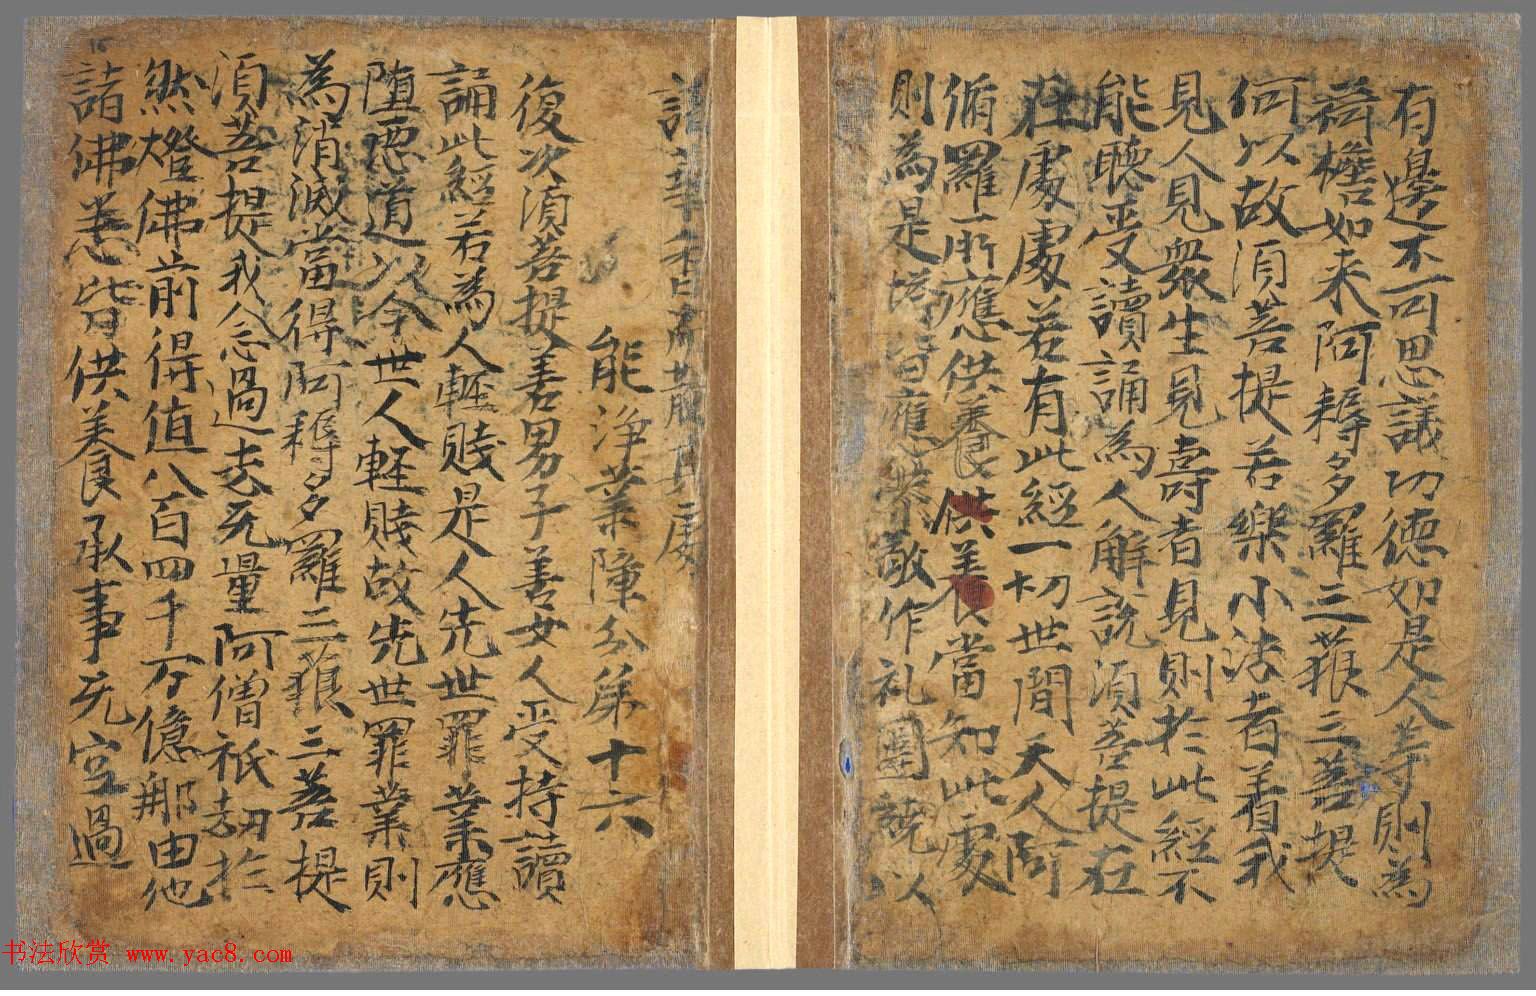 有邊不可思議功德如是人等則為
荷擔如来阿耨多羅三藐三菩提
何以故須菩提若樂小法者着我
見人見衆生見壽者見則於此經不
能聽受讀誦為人解說須菩提在
在處處若有此經一切世間天人阿
脩羅所應供養供养當知此處
則為是塔皆應恭敬作礼圍繞以
諸華香而散其處
能淨業障分弟十六
復次須菩提善男子善女人受持讀
誦此經若為人軽賤是人先世罪業應
堕惡道以今世人軽賤故先世罪業則
為消滅當得阿耨多羅三藐三菩提
須菩提我念過去无量阿僧祇劫於
然燈佛前得值八百四千万億那由他
諸佛悉皆供養承事无空過
书法欣赏 www.yac8.com